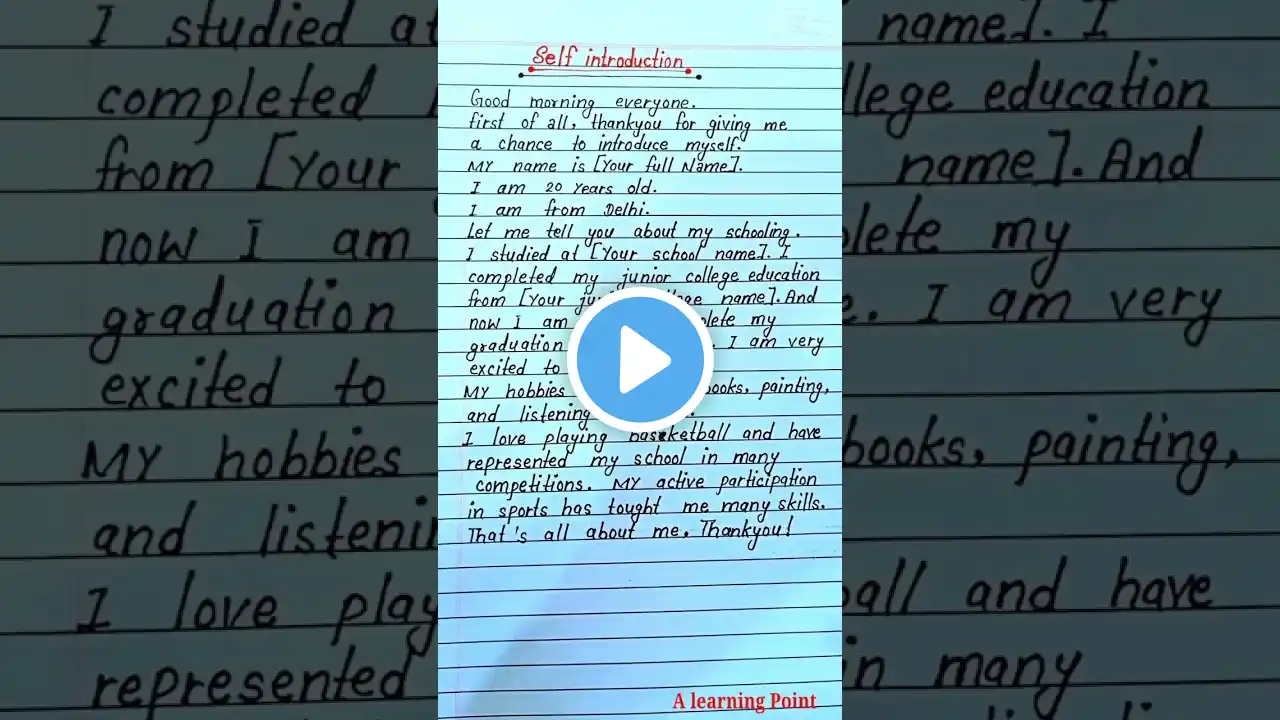 Self introduction
Good morning everyone.
first of all, thankyou for giving me
a chance to introduce myself.
MY name is [Your full Name].
I am 20 years old.
I am from Delhi.
Let me tell you about my schooling.
I studied at [Your school name]. I
completed my junior college education
from [Your name]. And
now I am my
graduation . I am very
excited to
MY hobbies books, painting,
and listening
I love playing basketball and have
represented my school in many
competitions. MY active participation
in sports has tought me many skills.
That's all about me. Thankyou!
A learning Point